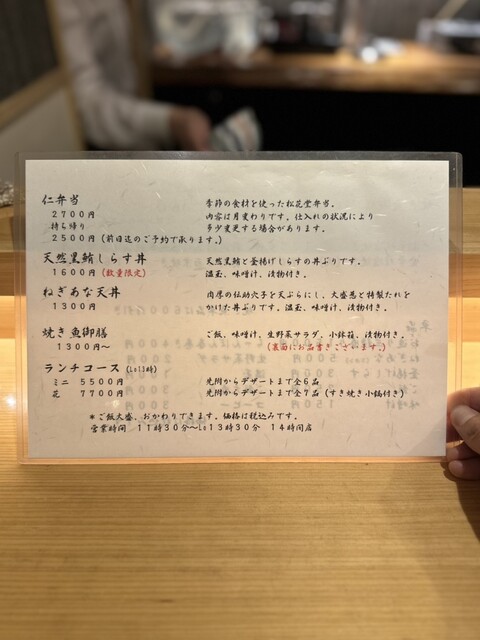 仁弁当 季節の食材を使った松花堂弁当。
2700円 内容は月変わりです。仕入れの状況により
持ち帰り 多少変更する場合があります。
2500円(前日迄のご予約で承ります。)
天然黒鮪しらす丼 天然黒鮪と釜揚げしらすの丼ぶりです。
1600円(数量限定) 温玉、味噌汁、漬物付き。
ねぎあな天丼 肉厚の伝助穴子を天ぷらにし、大盛葱と特製たれを
1300円 かけた丼ぶりです。温玉、味噌汁、漬物付き。
焼き魚御膳 ご飯、味噌汁、生野菜サラダ、小鉢種、漬物付き。
1300円~ (裏面にお品書きございます。)
ランチコース(Lo13時)
ミニ 5500円 先附からデザートまで全6品
花 7700円 先附からデザートまで全7品(すき焼き小鍋付き)
*ご飯大盛、おかわりできます。価格は税込みです。
営業時間 11時30分~Lo13時30分 14時閉店